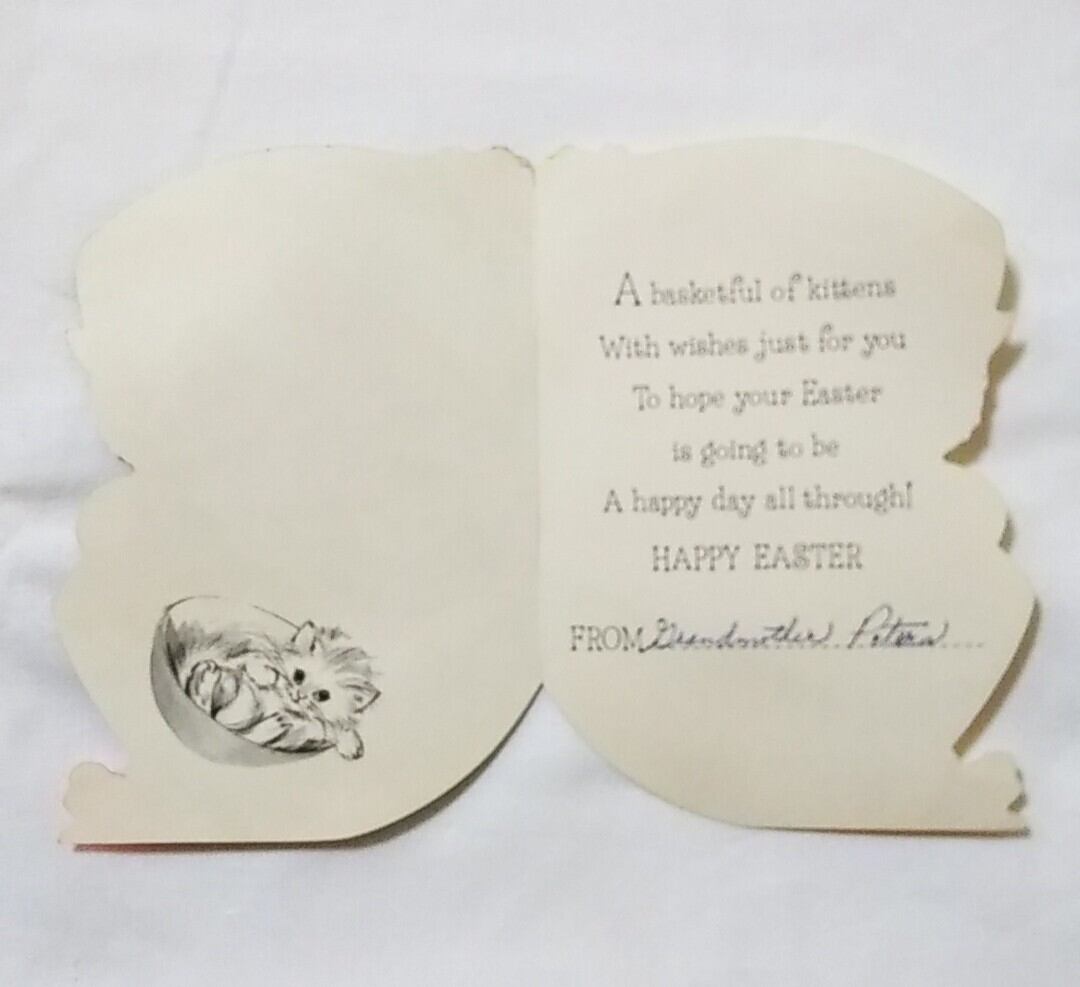 A basketful of kittens
With wishes just for you
To hope your Easter
is going to be
A happy day all through!
HAPPY EASTER
FROM Grandmother Peters